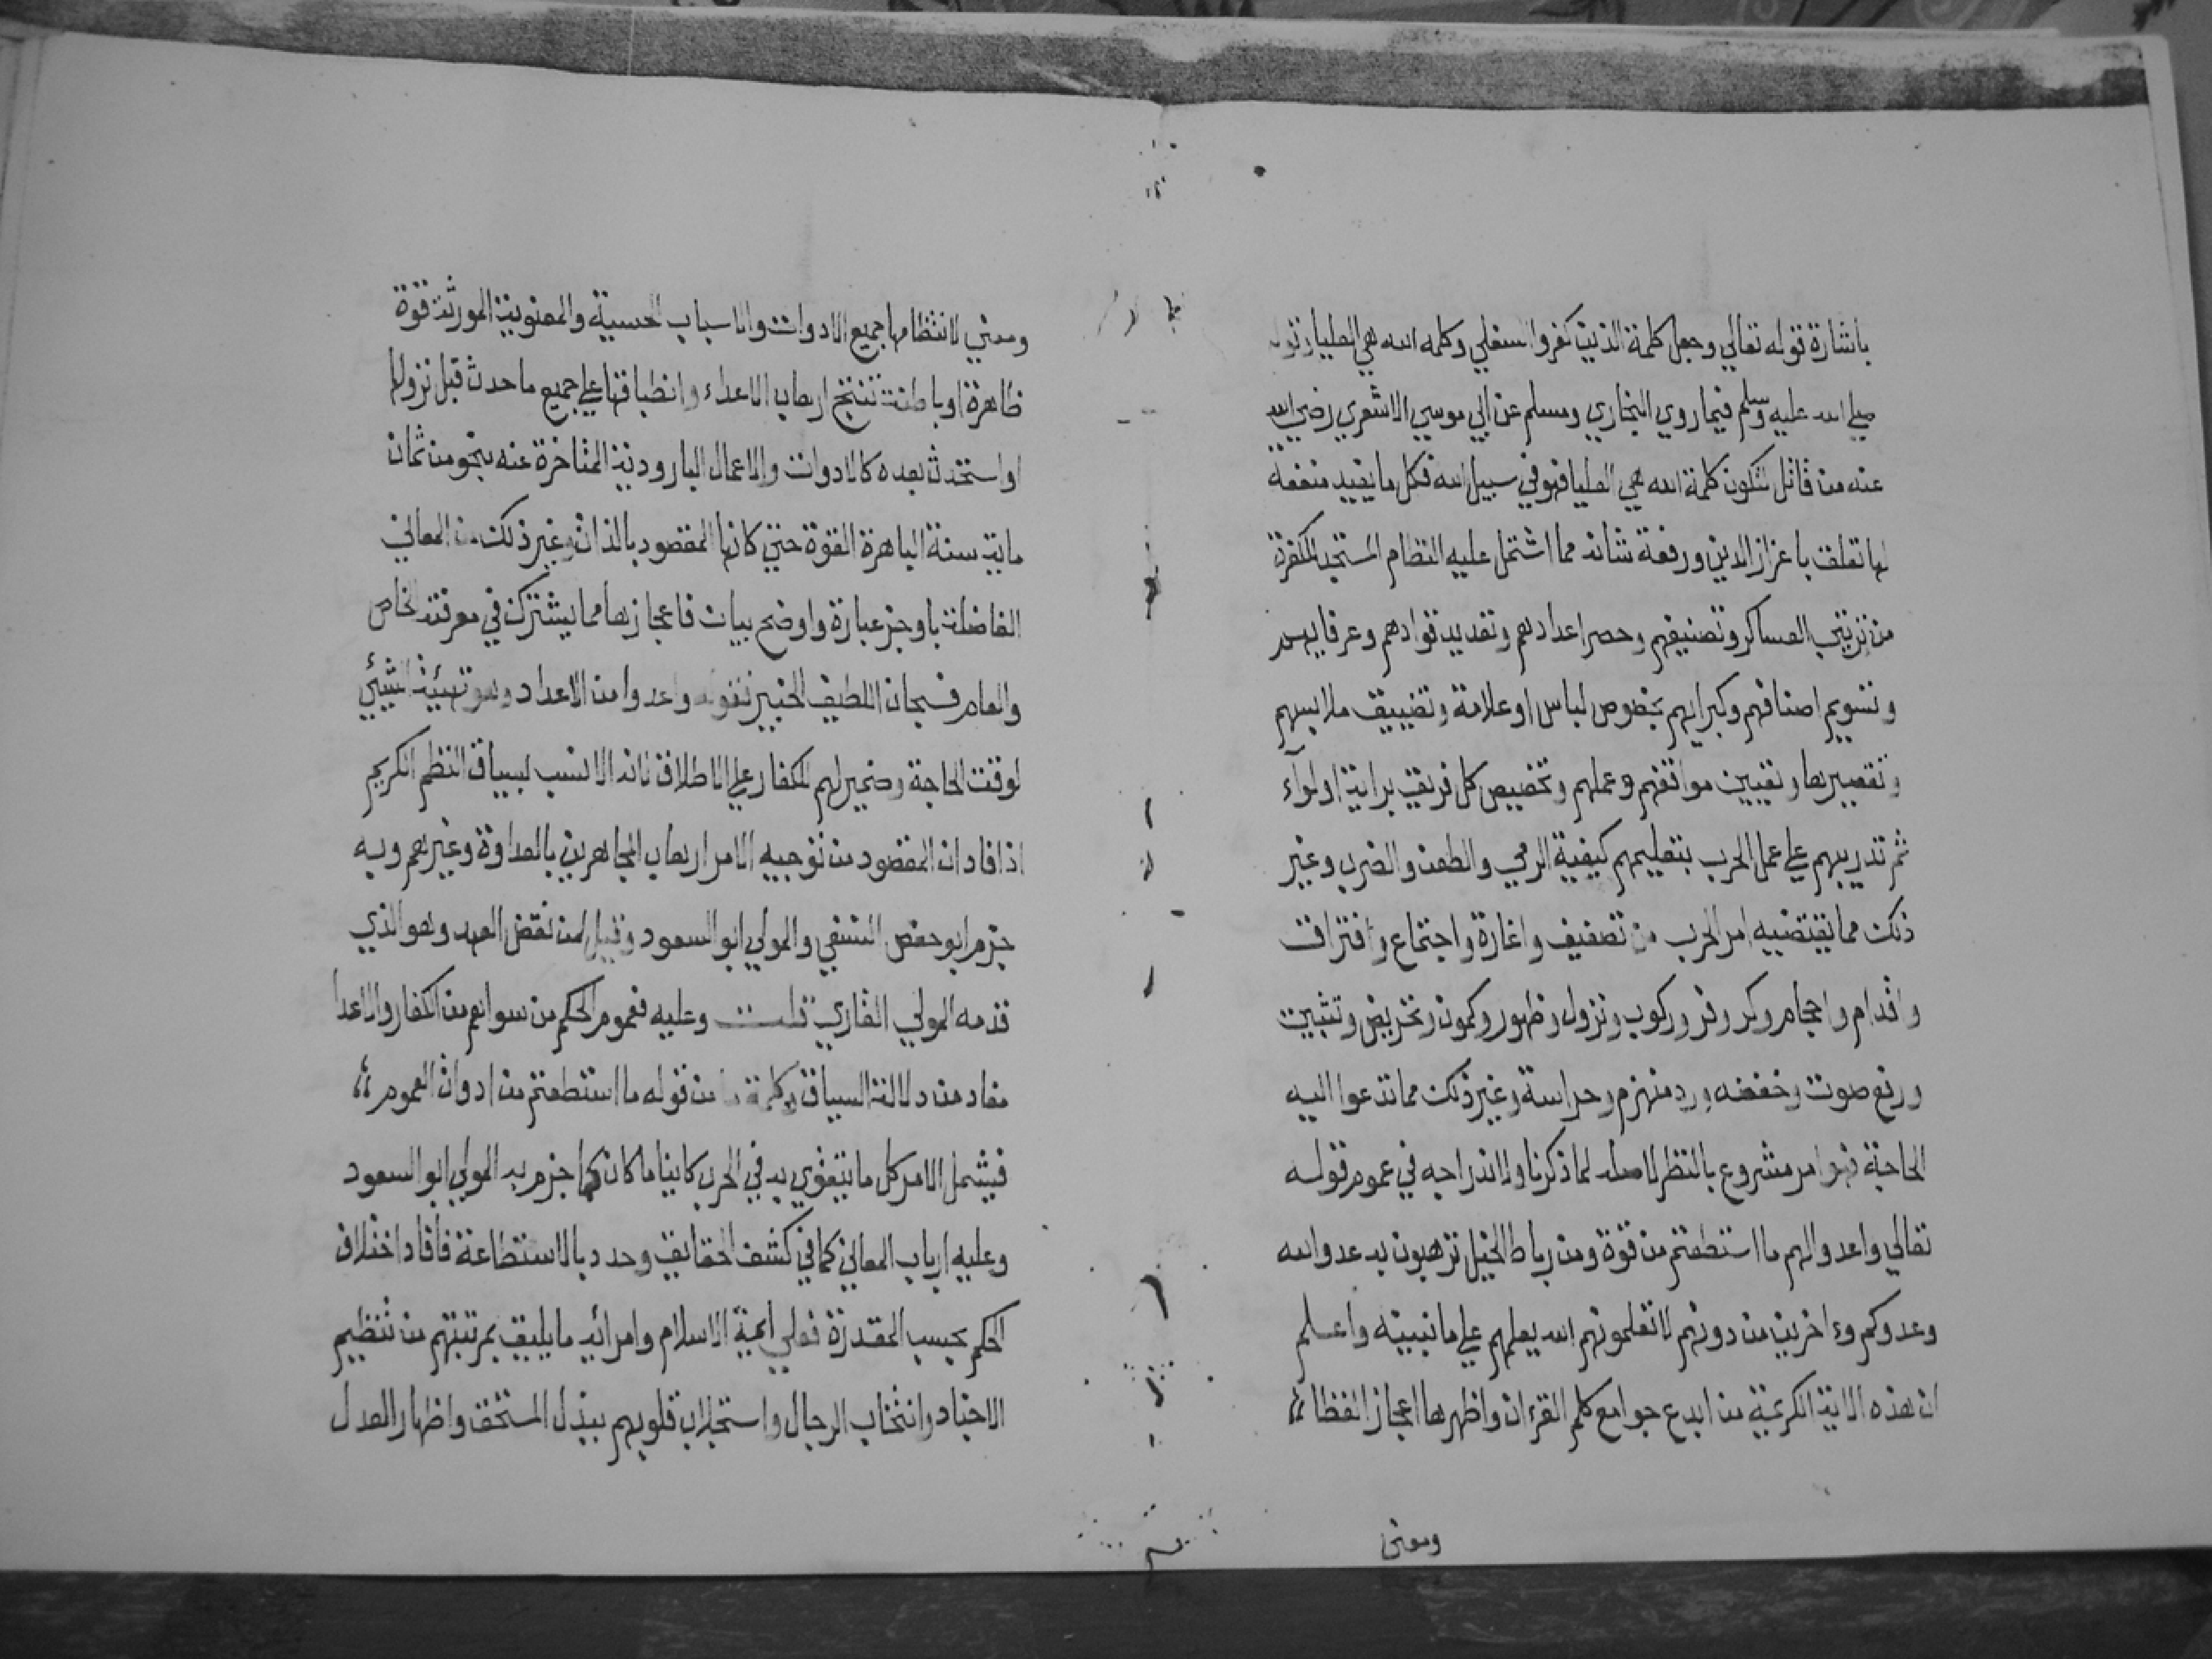 باشارة قوله تعالي وجعل كلمة الذين كفروا السفلي وكلمه الله هي العليا وقوله
صلي الله عليه وسلم فيما روي البخاري ومسلم عن ابي موسي الاشعري رضي الله
عنه من قاتل لتكون كلمة الله هي العليا فهو في سبيل الله فكل ما يفيد منفعة
لها تعلق باعزاز الدين ورفعة شانه مما اشتمل عليه النظام المستجد للكفرة
من ترتيب العساكر وتصنيفهم وحصر اعدادهم وتعديد قوادهم وعرفايهم
وتسويم اصنافهم وكبرايهم بخصوص لباس او علامة وتضييق ملابسهم
وتقصيرها وتعيين مواقفهم وعملهم وتخصيص كل فريق براية او لوآء
ثم تدريبهم علي عمل الحرب بتعليمهم كيفية الرمي والطعن والضرب وغير
ذلك مما يقتضيه امر الحرب من تصفيف واغارة واجتماع وافتراق
واقدام واحجام وكر وفر وركوب ونزول وظهور وكمون وتحريض وتثبيت
ورفع صوت وخفضه ورد منهزم وحراسة وغير ذلك مما تدعوا اليه
الحاجة فهو امر مشروع بالنظر لاصله لما ذكرنا ولاندراجه في عموم قوله
تعالي واعدوا لهم ما استطعتم من قوة ومن رباط الخيل ترهبون به عدو الله
وعدوكم وءاخرين من دونهم لا تعلمونهم الله يعلمهم علي ما نبينه واعلم
ان هذه الاية الكريمة من ابدع جوامع كلم القرءان واظهرها اعجازا لفظا
ومعنى
ومعني لانتظامها جميع الادوات والاسباب الحسية والمعنوية المورثة قوة
ظاهرة او باطنة تنتج ارهاب الاعداء وانطباقها علي جميع ما حدث قبل نزولها
او استحدث بعده كالادوات والاعمال البارودية المتاخرة عنه بنحو من ثمان
ماية سنة الباهرة القوة حتي كانها المقصود بالذات وغير ذلك من المعاني
الفاضلة باوجز عبارة واوضح بيان فاعجازها مما يشترك في معرفته الخاص
والعام فسبحان اللطيف الخبير فقوله واعدوا من الاعداد وهو تهيئة الشيئ
لوقت الحاجة وضمير لهم للكفار علي الاطلاق لانه الانسب لسياق النظم الكريم
اذ افاد ان المقصود من توجيه الامر ارهاب المجاهرين بالعداوة وغيرهم وبه
جزم ابو حفص النسفي والمولي ابو السعود وقيل لمن نقض العهد وهو الذي
قدمه المولي القاري قلت وعليه فعموم الحكم من سواهم من الكفار والاعدا
مفاد من دلالة السياق وكلمة ما من قوله ما استطعتم من ادوات العموم
فيشمل الامر كل ما يتقوي به في الحرب كاينا ما كان كما جزم به المولي ابو السعود
وعليه ارباب المعاني كما في كشف الحقايق وحدد بالاستطاعة فافاد اختلاف
الحكم بحسب المقدرة فعلي ايمة الاسلام وامرائه ما يليق بمرتبتهم من تنظيم
الاجناد وانتخاب الرجال واستجلاب قلوبهم ببذل المستحق واظهار العدل